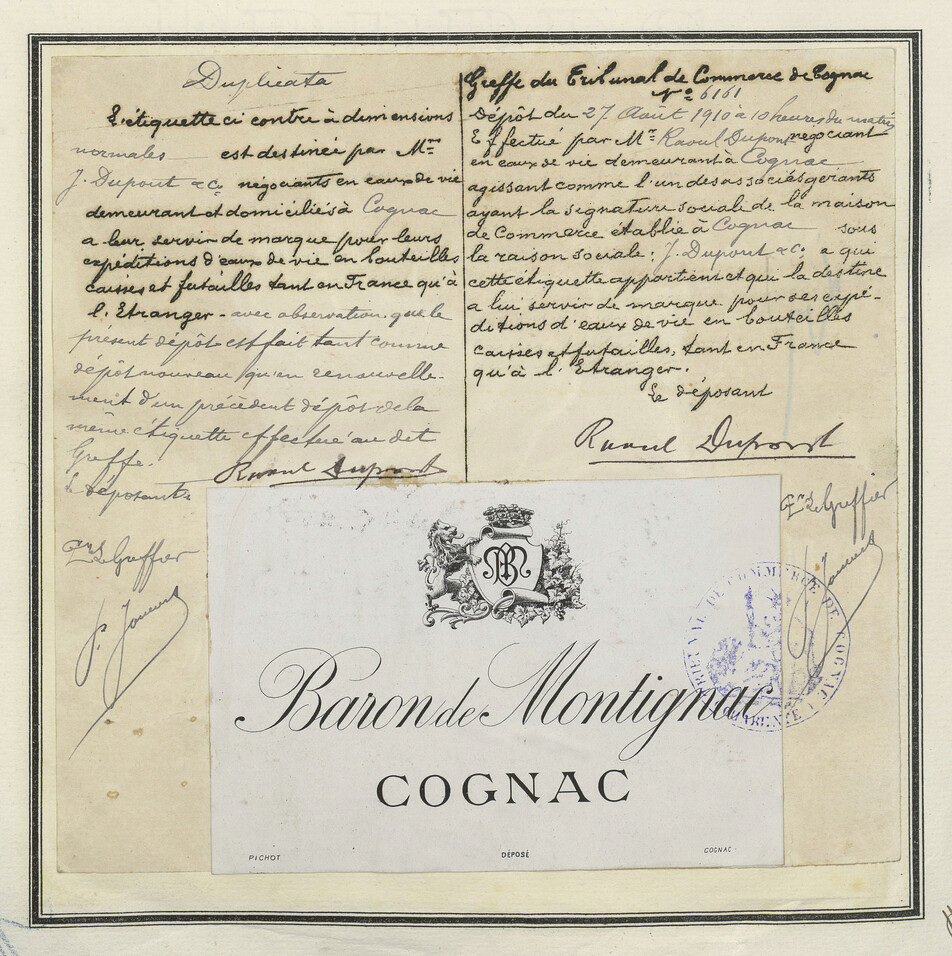 Duplicata
L'étiquette ci contre à dimensions
normales est destinée par Mrs
J. Dupont & Co négociants en eaux de vie
demeurant et domiciliés à Cognac
a leur servir de marque pour leurs
expéditions d'eaux de vie en bouteilles
caisses et futailles tant en France qu'à
l'Etranger - avec observation que le
présent dépôt est fait tant comme
dépôt nouveau qu'en renouvelle-
ment d'un précédent dépôt de la
même étiquette effectué au dit
Greffe.
Le déposant
Raoul Dupont
Le Greffier
Greffe du Tribunal de Commerce de Cognac
No 6161
Dépôt du 27 Août 1910 à 10 heures du matin
Effectué par Mr Raoul Dupont negociant
en eaux de vie demeurant à Cognac
agissant comme l'un des associés gerants
ayant la signature sociale de la maison
de Commerce établie à Cognac sous
la raison sociale: J. Dupont & Co a qui
cette étiquette appartient et qui la destine
a lui servir de marque pour ses expé-
ditions d'eaux de vie en bouteilles
caisses et futailles, tant en France
qu'à l'Etranger.
Le déposant
Raoul Dupont
Le Greffier
Baron de Montignac
COGNAC
PICHOT DÉPOSÉ COGNAC
TRIBUNAL DE COMMERCE DE COGNAC
CHARENTE